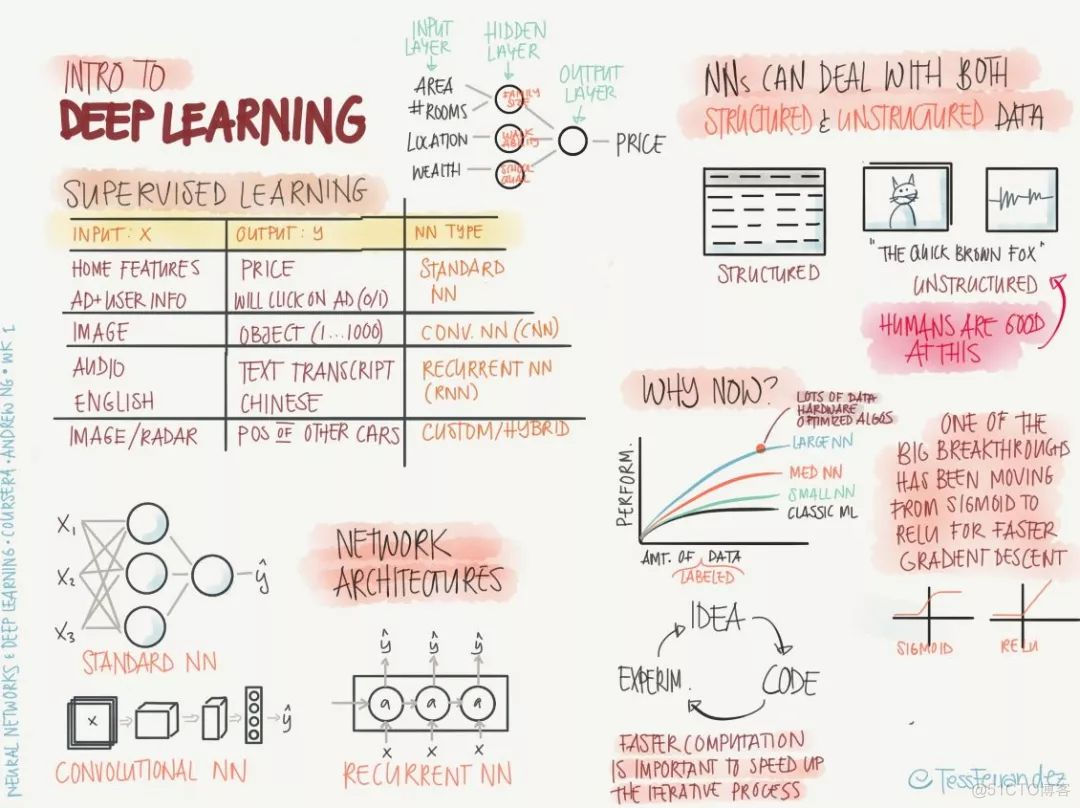 INTRO TO
DEEP LEARNING
INPUT
LAYER
HIDDEN
LAYER
OUTPUT
LAYER
AREA
#ROOMS
LOCATION
WEALTH
FAMILY
SIZE
WALK
ABILITY
SCHOOL
QUAL
PRICE
SUPERVISED LEARNING
INPUT: X OUTPUT: y NN TYPE
HOME FEATURES PRICE STANDARD
AD+USER INFO WILL CLICK ON AD (0/1) NN
IMAGE OBJECT (1...1000) CONV. NN (CNN)
AUDIO TEXT TRANSCRIPT RECURRENT NN
ENGLISH CHINESE (RNN)
IMAGE/RADAR POS OF OTHER CARS CUSTOM/HYBRID
X1
X2
X3
ŷ
STANDARD NN
X
ŷ
CONVOLUTIONAL NN
NETWORK
ARCHITECTURES
ŷ ŷ ŷ
a a a
X X X
RECURRENT NN
NNs CAN DEAL WITH BOTH
STRUCTURED & UNSTRUCTURED DATA
STRUCTURED
"THE QUICK BROWN FOX"
UNSTRUCTURED
HUMANS ARE GOOD
AT THIS
WHY NOW?
LOTS OF DATA
HARDWARE
OPTIMIZED ALGOS
LARGE NN
MED NN
SMALL NN
CLASSIC ML
PERFORM.
AMT. OF DATA
LABELED
ONE OF THE
BIG BREAKTHROUGHS
HAS BEEN MOVING
FROM SIGMOID TO
RELU FOR FASTER
GRADIENT DESCENT
SIGMOID
RELU
IDEA
CODE
EXPERIM.
FASTER COMPUTATION
IS IMPORTANT TO SPEED UP
THE ITERATIVE PROCESS
NEURAL NETWORKS & DEEP LEARNING · COURSERA · ANDREW NG · WK 1
@TessFerrandez
@51CTO博客